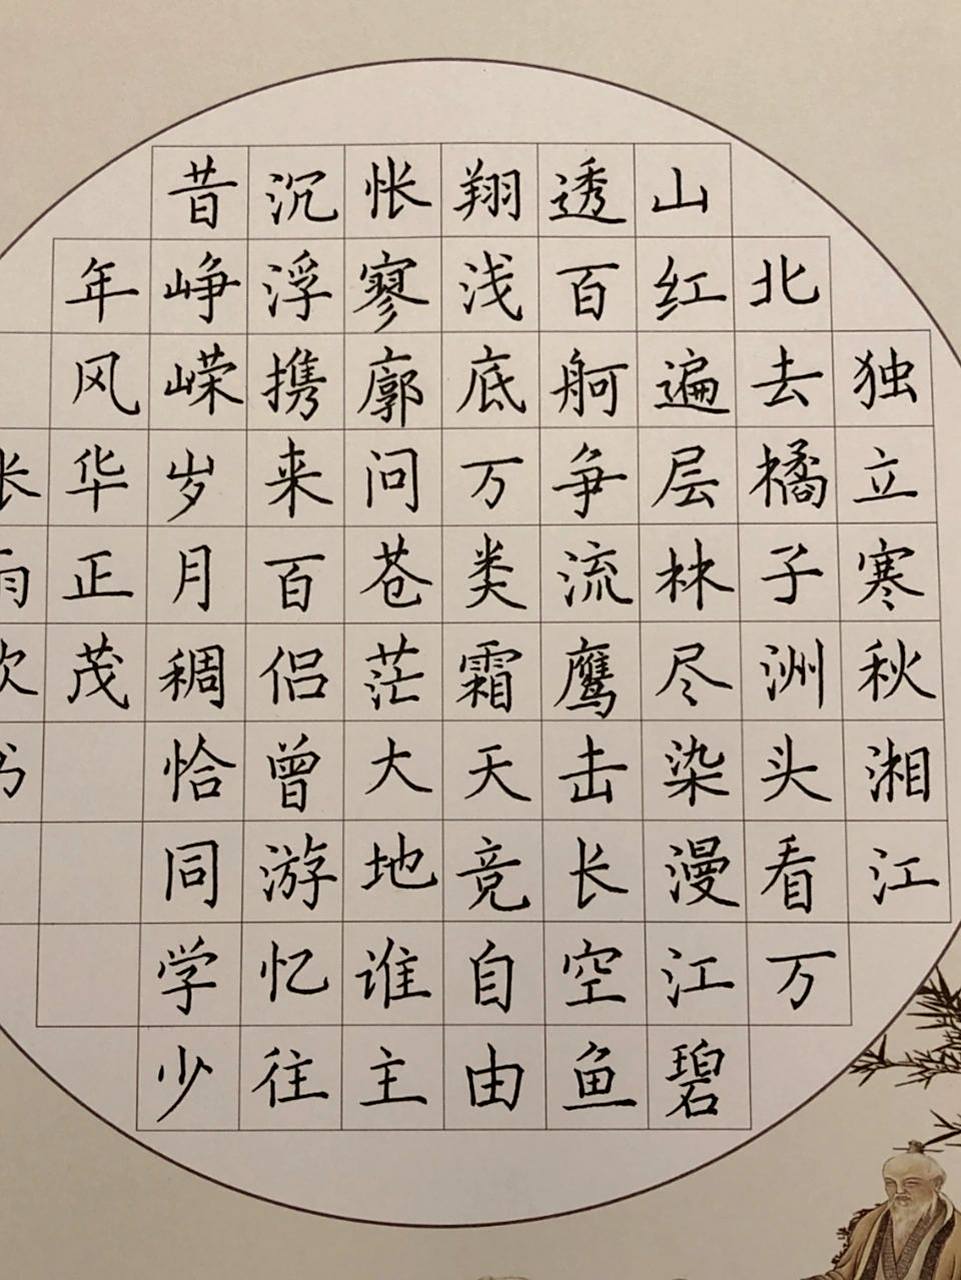 独立寒秋湘江
北去橘子洲头看万
山红遍层林尽染漫江碧
透百舸争流鹰击长空鱼
翔浅底万类霜天竞自由
怅寥廓问苍茫大地谁主
沉浮携来百侣曾游忆往
昔峥嵘岁月稠恰同学少
年风华正茂